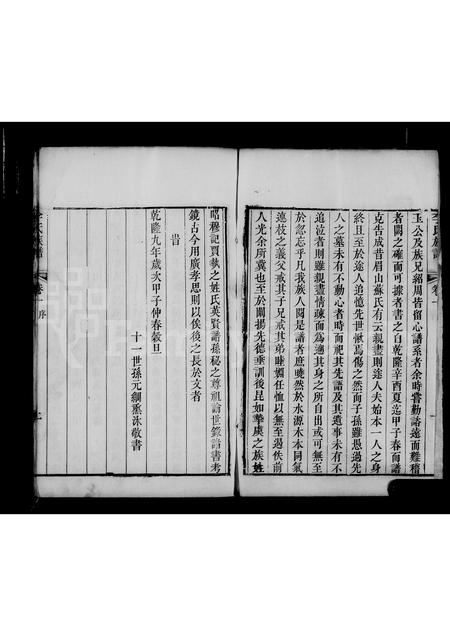 玉公及族兄紹周皆留心譜系者余時嘗勸諮遠而難稽
者闕之確而可據者書之自乾隆辛酉夏迄甲子春而譜
克告成昔眉山蘇氏有云親盡則途人夫始本一人之身
終且至於途人追憶先世愀焉傷之然而子孫雖愚過先
人之墓未有不動心者時而祀其先語及其遺事未有不
追泣者則雖親盡情疎而為遡其身之所自出或可無至
於忽忘乎凡我族人閱是譜者庶曉然於水源木本同氣
連枝之義父戒其子兄戒其弟睦婣任恤以無至過佚前
人光余所冀也至於闡揚先德垂訓後昆如摯虞之族姓
昭穆記賈執之姓氏英賢譜孫秘之尊祖論世錄諸書考
鏡古今用廣孝思則以俟後之長於文者
旹
乾隆九年歲次甲子仲春穀旦
十一世孫元綱薰沐敬書
李氏族譜
卷
序